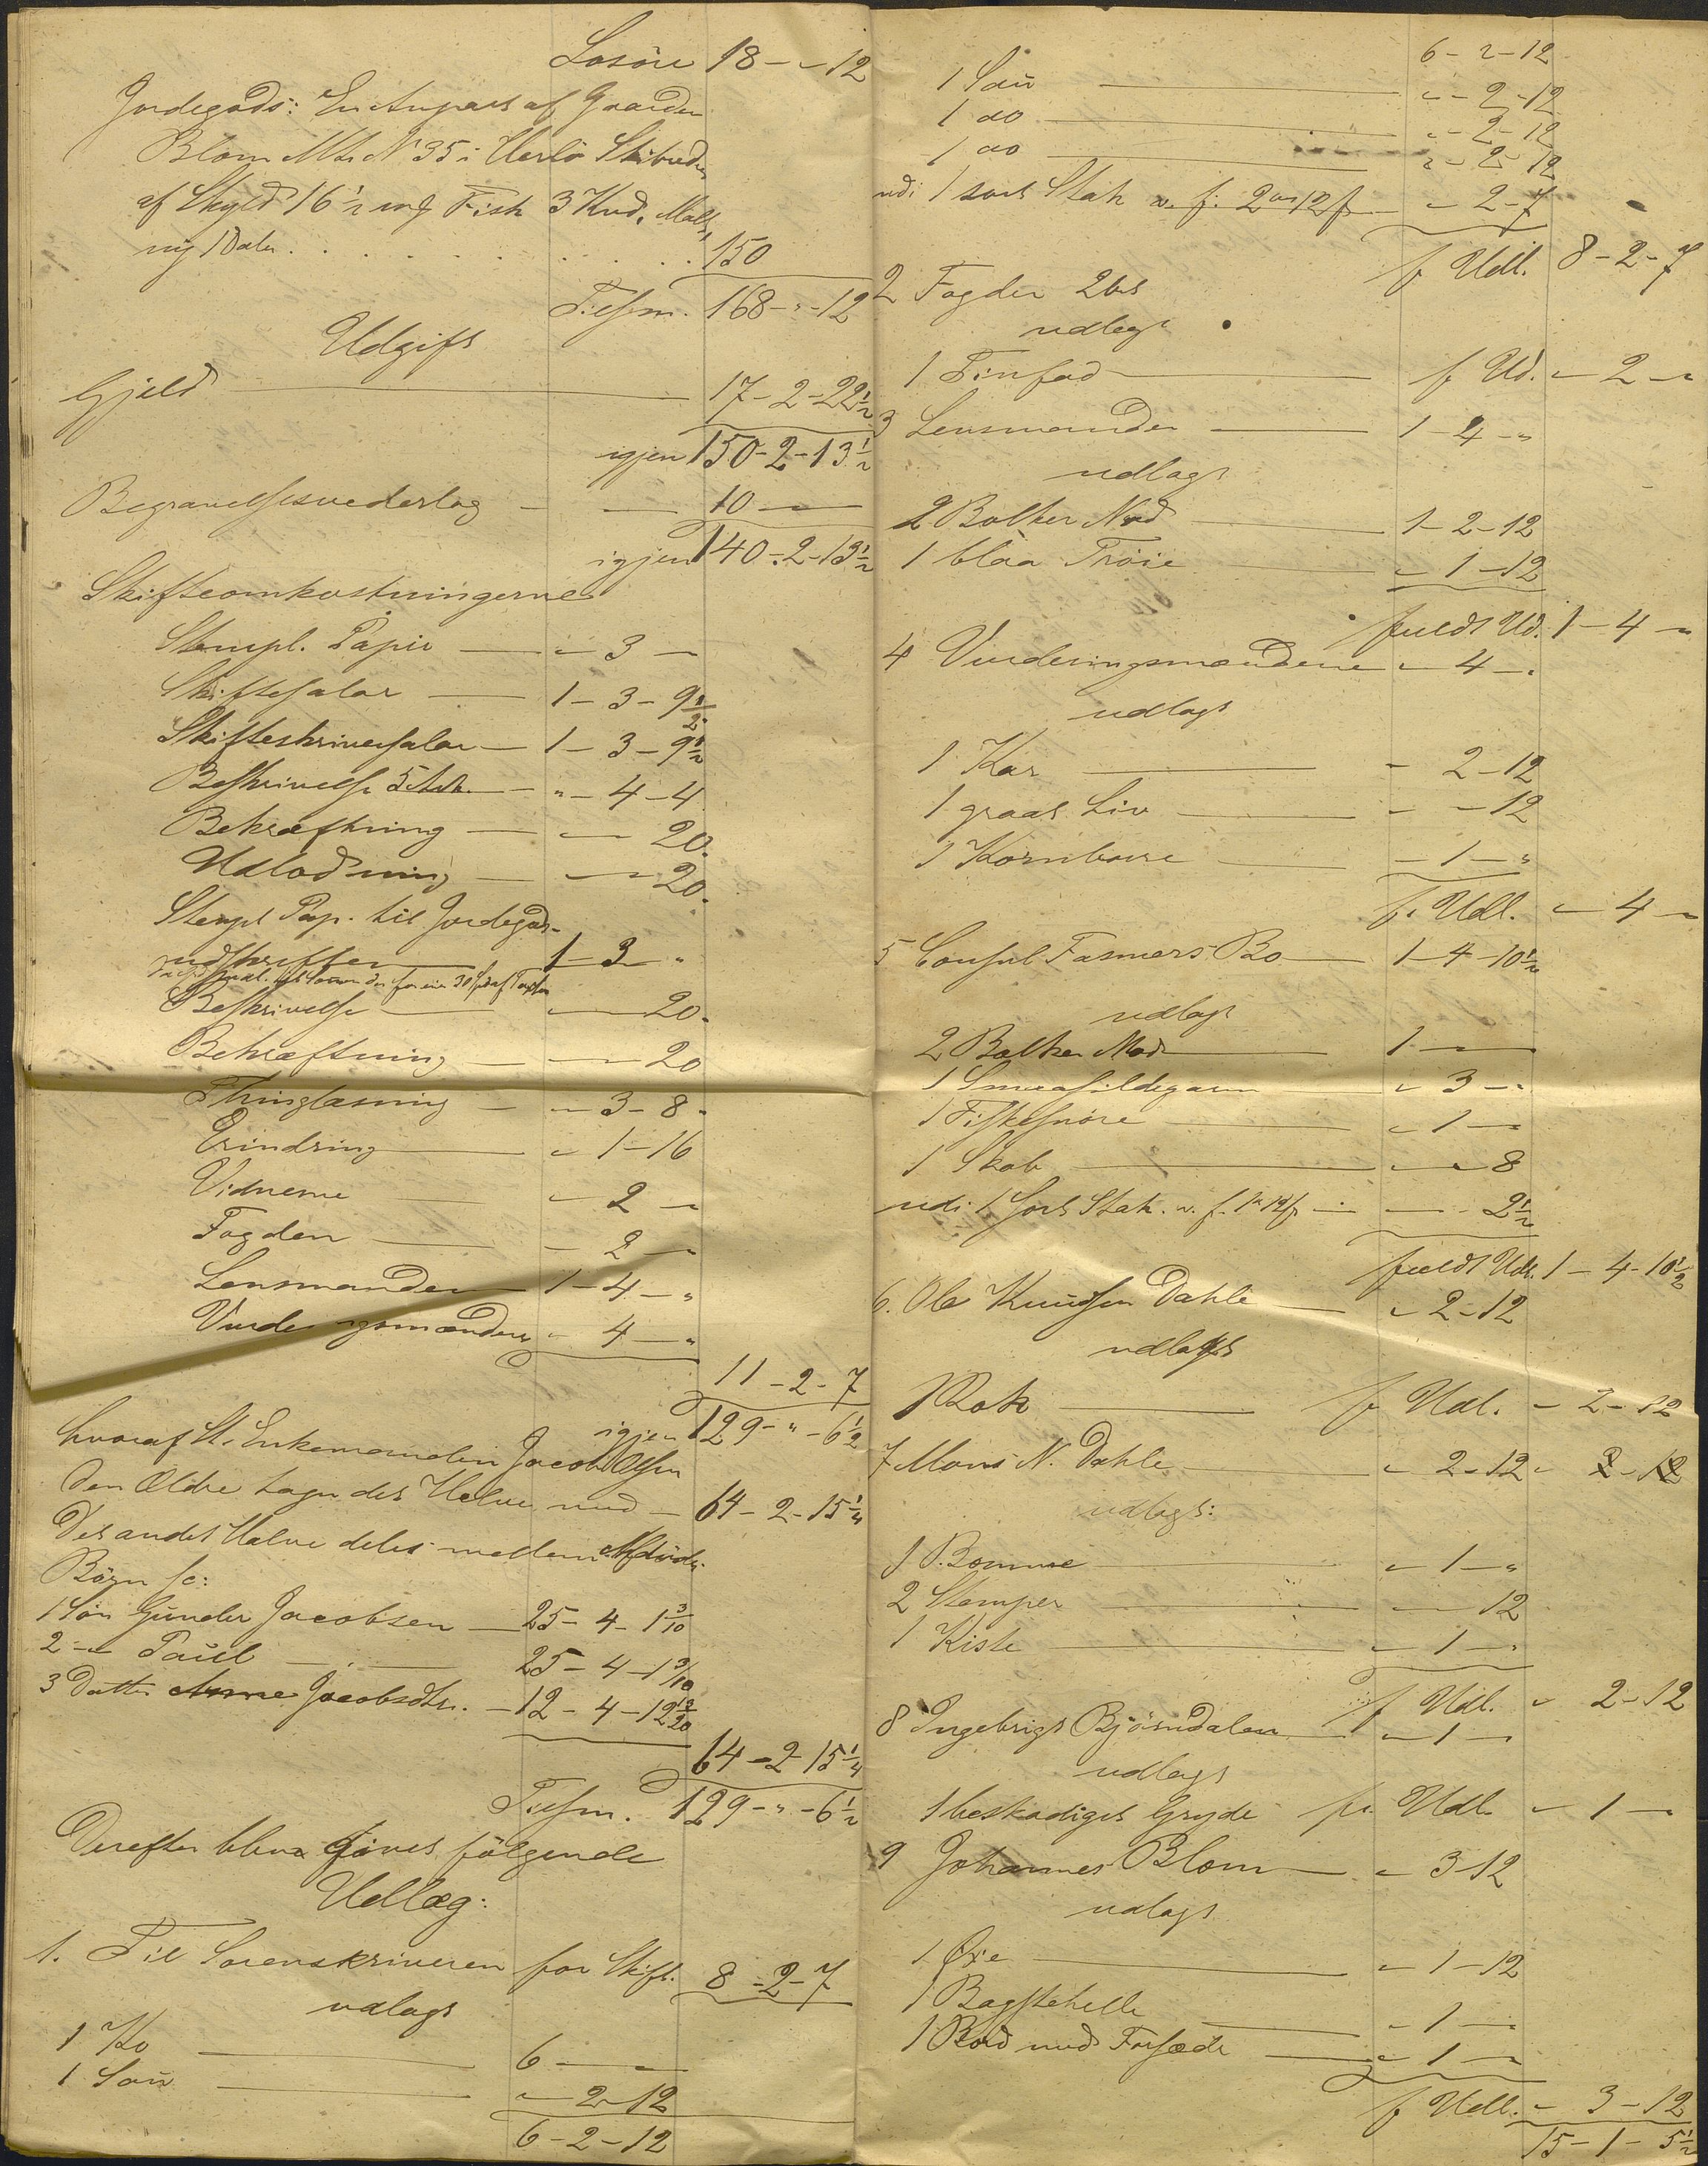 Losöre 18 - " - 12
Jordegods: En Anpart af Gaarden
Blom Mtr. N 35 i Herlö Skibrede
af Skyld 16 1/2 mg Fisk 3 Knd. Malt,
ny 1 Daler . . . . . . . 150
Tilsm. 168 - " - 12
Udgift
Gjeld 17 - 2 - 22 1/2
igjen 150 - 2 - 13 1/2
Begravelsesvederlag 10 - "
igjen 140 - 2 - 13 1/2
Skifteomkostningerne
Stempl. Papir " - 3 - "
Skiftesalar 1 - 3 - 9 1/2
Skifteskriversalar 1 - 3 - 9 1/2
Beskrivelse 5 Ark. " - 4 - 4
Bekræftning " - " 20.
Udlodning " - " 20.
Stempl Pap. til Jordegods-
udskriften 1 - 3 - "
Beskrivelse " - 20.
Bekræftning " - 20
Thinglæsning " - 3 - 8.
Erindring " 1 - 16
Vidnerne " 2 - "
Fogden - 2 - "
Lensmanden 1 - 4 - "
Vurderingsmændene " 4 - "
11 - 2 - 7
igjen 129 - " - 6 1/2
hvoraf St. Enkemanden Jacob Olsen
den Ældre tager det Halve med 64 - 2 - 15 1/4
Det andet Halve deles mellem Afdödes
Börn sc:
1 Sön Gunder Jacobsen 25 - 4 - 1 3/10
2 - " Paul 25 - 4 - 1 3/10
3 Datter Anne Jacobsdtr. 12 - 4 - 12 13/20
64 - 2 - 15 1/4
Tilsm. 129 - " - 6 1/2
Derefter blev gjort følgende
Udlæg:
1. Til Sorenskriveren for Skift. 8 - 2 - 7
udlagt
1 Ko 6 - "
1 Sau " - 2 - 12
6 - 2 - 12
6 - 2 - 12
1 Sau " - 2 - 12
1 do " - 2 - 12
1 do " - 2 - 12
udi 1 sort Stak v. f. 2 ort 12 s " - 2 - 7
f Udl. 8 - 2 - 7
2 Fogden 2 ort
udlagt
1 Tinfad f Ud. " - 2 - "
3 Lensmanden 1 - 4 - "
udlagt
2 Bolker Nød 1 - 2 - 12
1 blaa Tröie " 1 - 12
fuldt Ud. 1 - 4 - "
4 Vurderingsmændene " 4 - "
udlagt
1 Kar - 2 - 12
1 graat Liv - - 12
1 Kornbøre - 1 - "
f. Udl. " - 4 - "
5 Consul Fasmers Bo 1 - 4 - 10 1/2
udlagt
2 Bolker Mod 1 - "
1 Smaasildegarn " 3 - "
1 Fiskesnöre " 1 - "
1 Skab " - " 8
udi 1 sort Stak. v. f. - 2 1/2
fuldt Udl. 1 - 4 - 10 1/2
6. Ole Knudsen Dahle " 2 - 12
udlagt
1 Rok f Udl. - 2 - 12
7 Mons N. Dahle " 2 - 12 " 2 - 12
udlagt:
1 Bomme " 1 - "
2 Stamper " - 12
1 Kiste " 1 - "
f Udl. " 2 - 12
8 Ingebrigt Björndalen " 1 - "
udlagt
1 beskadiget Gryde f. Udl. " 1 - "
9 Johannes Blom " 3 - 12
udlagt
1 Øxe " 1 - 12
1 Bagstehelle - 1 - "
1 Bord med Forsæde " 1 - "
f Udl. " 3 - 12
15 - 1 - 5 1/2